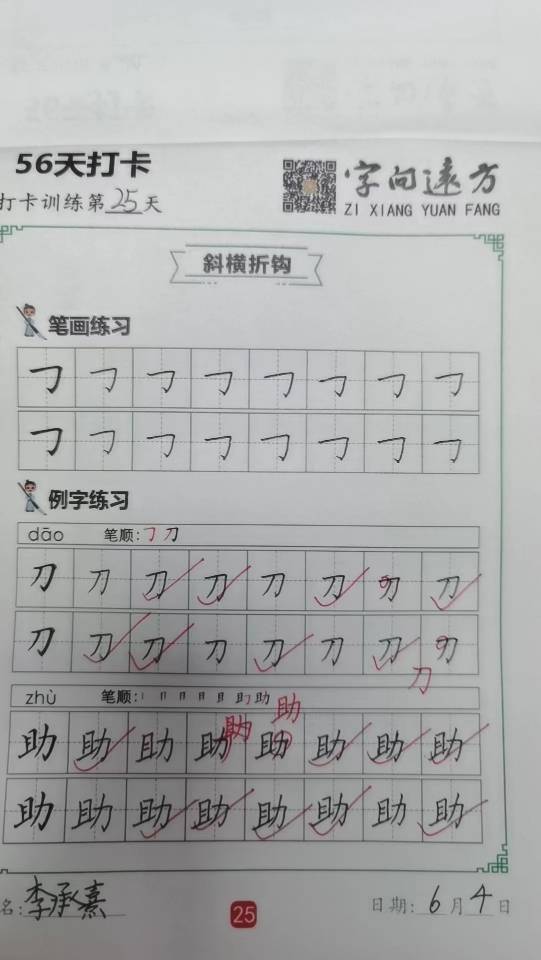 56天打卡
字向远方
打卡训练第25天
ZI XIANG YUAN FANG
斜横折钩
笔画练习
㇆ ㇆ ㇆ ㇆ ㇆ ㇆ ㇆ ㇆
㇆ ㇆ ㇆ ㇆ ㇆ ㇆ ㇆ ㇆
例字练习
dāo 笔顺:㇆刀
刀 刀 刀 刀 刀 刀 刀 刀
刀 刀 刀 刀 刀 刀 刀 刀
刀
zhù 笔顺: 助
助 助
助 助 助 助 助 助 助 助
助 助 助 助 助 助 助 助
名:李承熹
25
日期: 6月4日